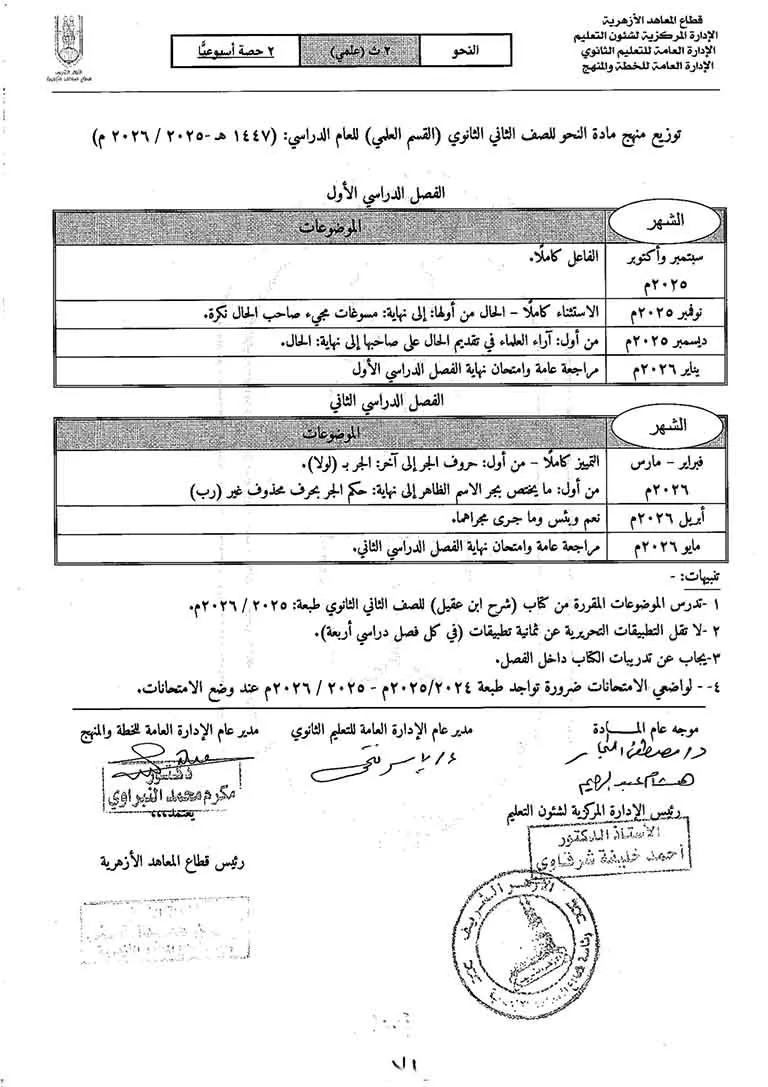 قطاع المعاهد الأزهرية
الإدارة المركزية لشئون التعليم
الإدارة العامة للتعليم الثانوي
الإدارة العامة للخطة والمنهج
النحو
٢ ث (علمي)
٢ حصة أسبوعيًّا
توزيع منهج مادة النحو للصف الثاني الثانوي (القسم العلمي) للعام الدراسي: (١٤٤٧ هـ -٢٠٢٥ / ٢٠٢٦ م)
الفصل الدراسي الأول
الشهر
الموضوعات
سبتمبر وأكتوبر ٢٠٢٥م
الفاعل كاملًا.
نوفمبر ٢٠٢٥م
الاستثناء كاملًا – الحال من أولها: إلى نهاية: مسوغات مجيء صاحب الحال نكرة.
ديسمبر ٢٠٢٥م
من أول: آراء العلماء في تقديم الحال على صاحبها إلى نهاية: الحال.
يناير ٢٠٢٦م
مراجعة عامة وامتحان نهاية الفصل الدراسي الأول
الفصل الدراسي الثاني
الشهر
الموضوعات
فبراير – مارس ٢٠٢٦م
التمييز كاملًا – من أول: حروف الجر إلى آخر: الجر بـ (لولا).
من أول: ما يختص بجر الاسم الظاهر إلى نهاية: حكم الجر بحرف محذوف غير (رب)
أبريل ٢٠٢٦م
نعم وبئس وما جرى مجراهما.
مايو ٢٠٢٦م
مراجعة عامة وامتحان نهاية الفصل الدراسي الثاني.
تنبيهات: -
١ -تدرس الموضوعات المقررة من كتاب (شرح ابن عقيل) للصف الثاني الثانوي طبعة: ٢٠٢٥ / ٢٠٢٦م.
٢ -لا تقل التطبيقات التحريرية عن ثمانية تطبيقات (في كل فصل دراسي أربعة).
٣-يجاب عن تدريبات الكتاب داخل الفصل.
٤- - لواضعي الامتحانات ضرورة تواجد طبعة ٢٠٢٥/٢٠٢٤م - ٢٠٢٥ / ٢٠٢٦م عند وضع الامتحانات.
موجه عام المـــادة
مدير عام الإدارة العامة للتعليم الثانوي
مدير عام الإدارة العامة للخطة والمنهج
د/ مصطفى النجار
هشام عبد الرحيم
دكتور
مكرم محمد النبراوي
يعتمد،،،
رئيس الإدارة المركزية لشئون التعليم
الأستاذ الدكتور
أحمد خليفة شرقاوي
رئيس قطاع المعاهد الأزهرية
الأزهر الشريف